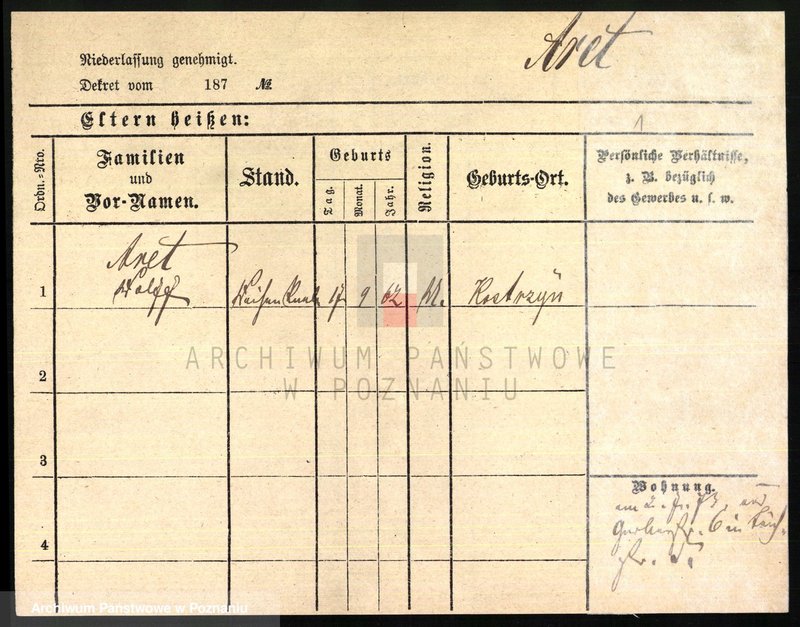 Aret
Niederlassung genehmigt.
Dekret vom 187 №
1
Eltern heißen:
Ordn.-Nro.
Familien
und
Vor-Namen.
Stand.
Geburts
Tag.
Monat.
Jahr.
Religion.
Geburts-Ort.
Persönliche Verhältnisse,
z. B. bezüglich
des Gewerbes u. s. w.
Aret
1 Wolff 17 9 62 M. Kostrzyn
ARCHIWUM PAŃSTWOWE
W POZNANIU
2
3
4
Wohnung.
6 in
Archiwum Państwowe w Poznaniu